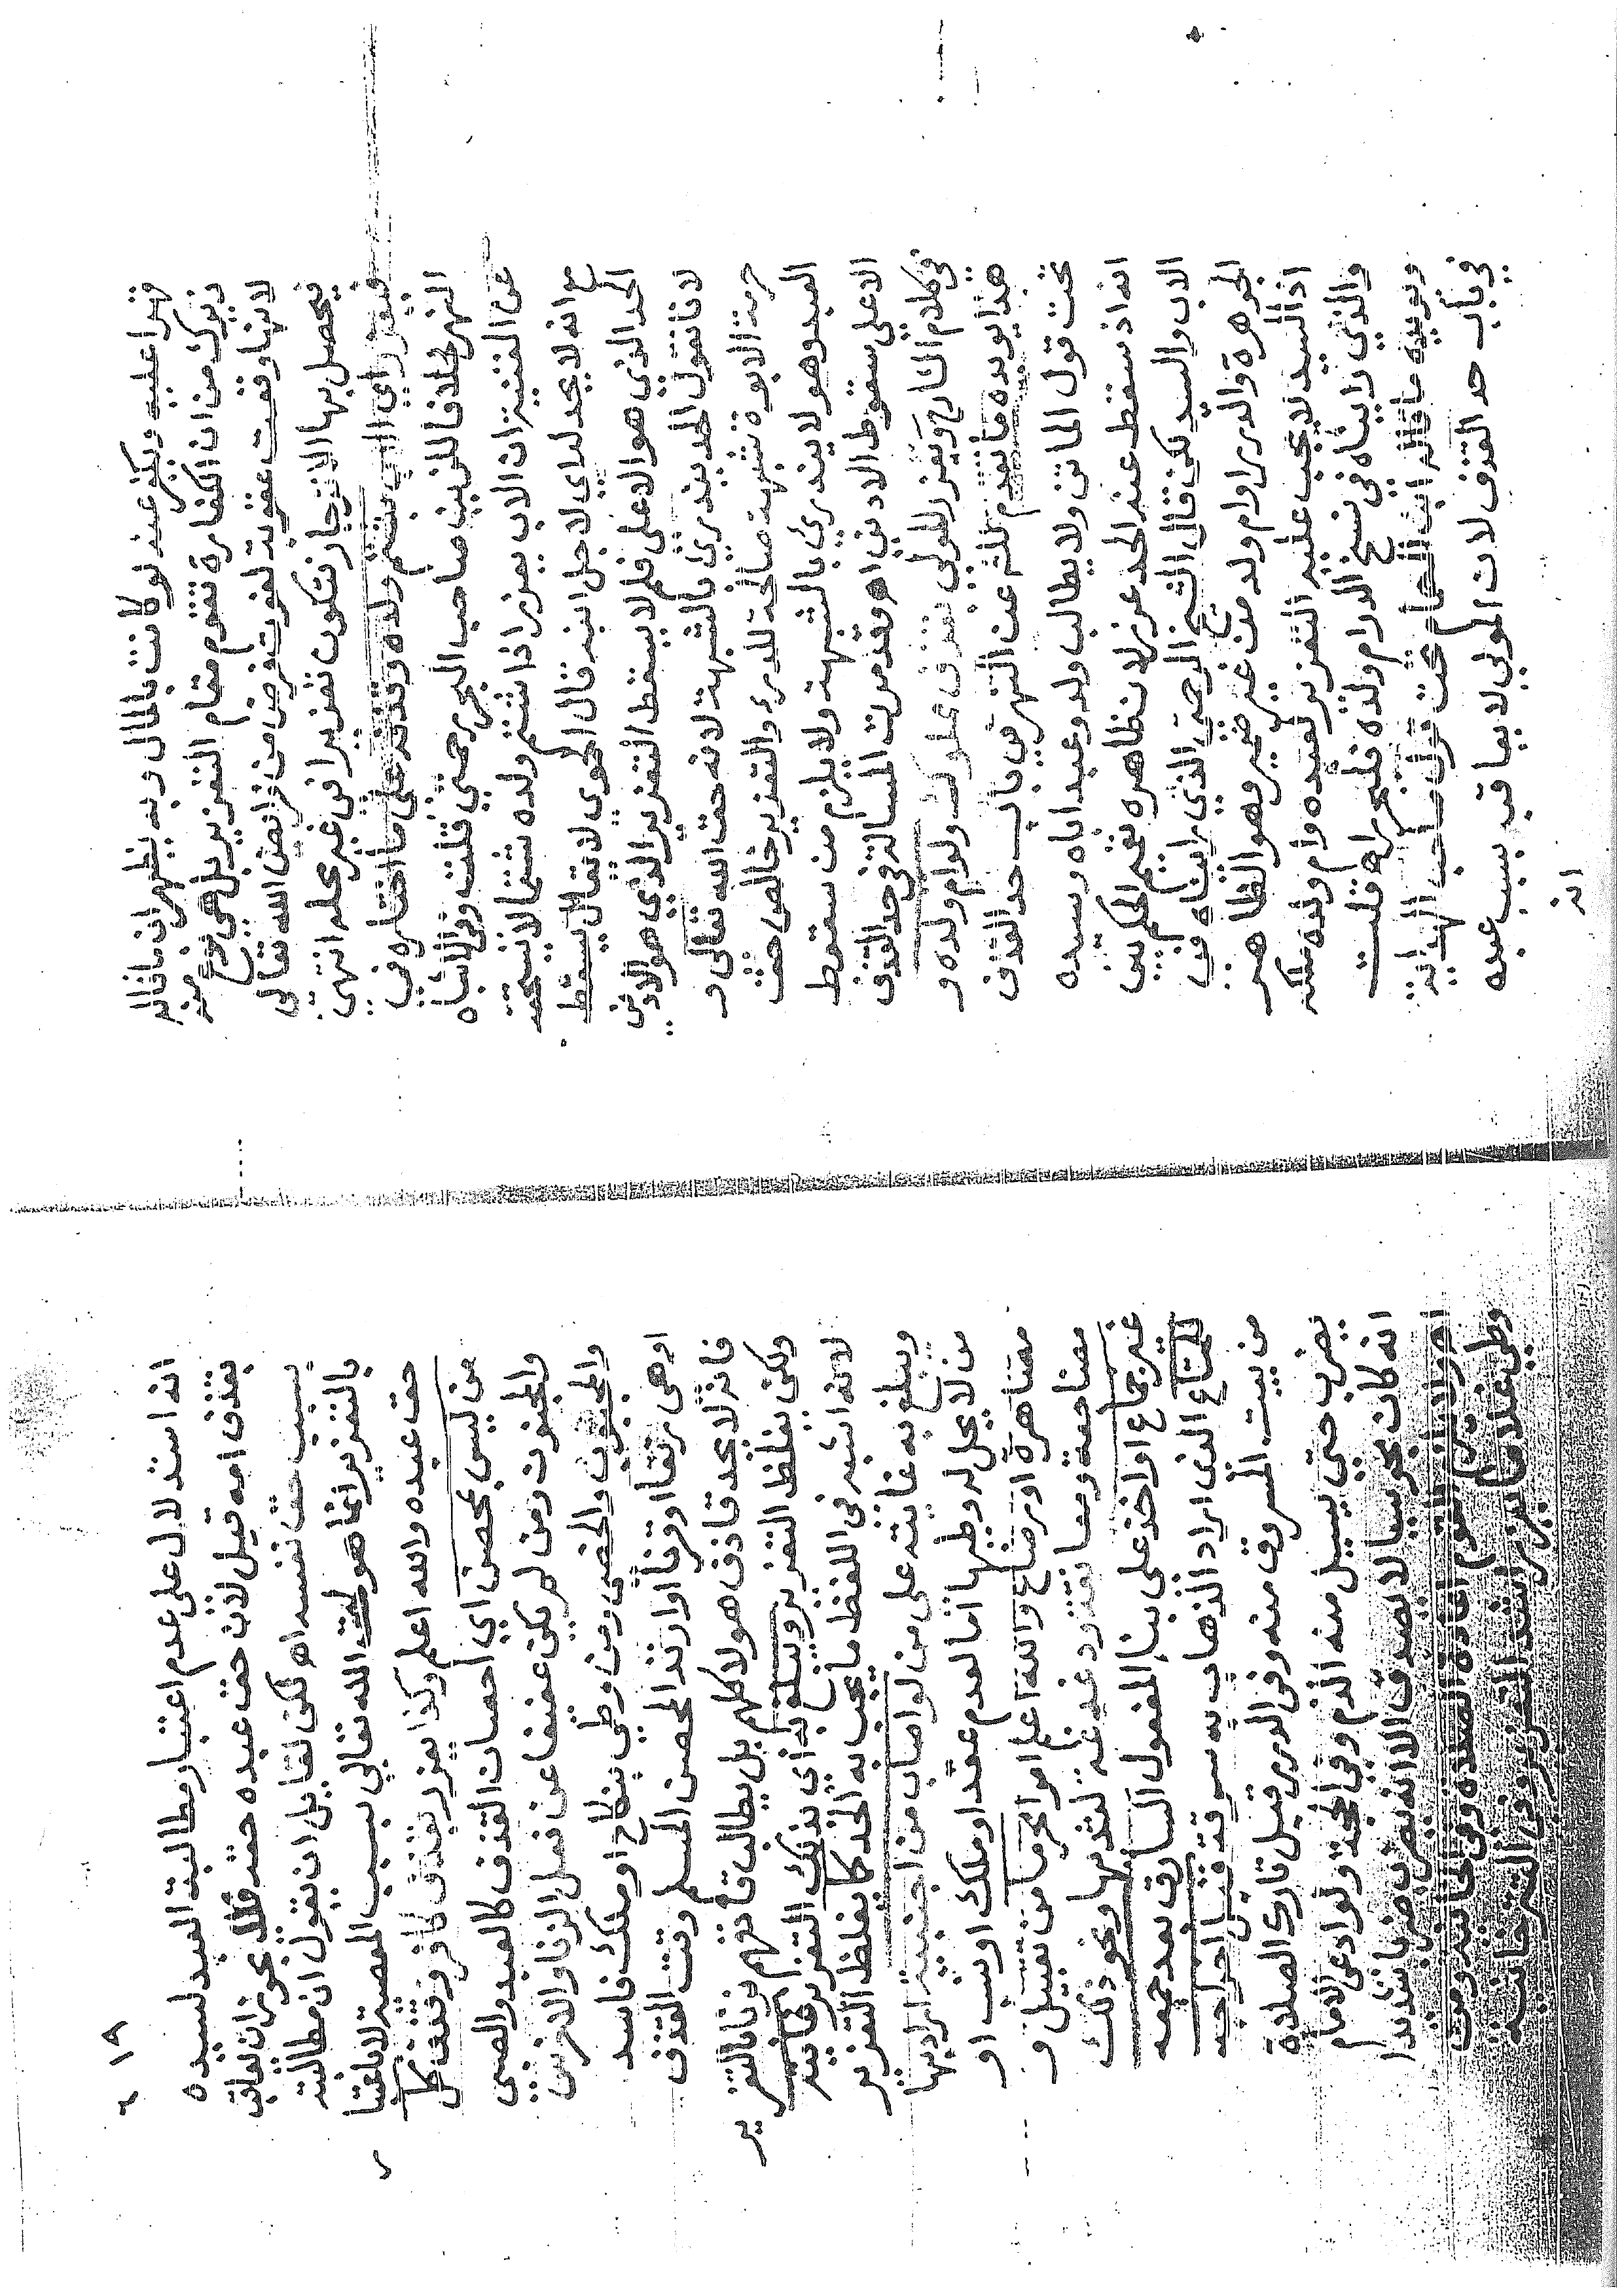 فهو اغلب ويكفر عنه لو كانت بالمال وبه يظهر ان ما قاله
نوزك من ان الكفارة تقوم مقام التعزير بل هي نوع منه
لانها وقعت عقوبة لفوت فرض من فرائض الله تعالى
يحصل بها الانزجار فتكون تعزيرا في غير محله انتهى
فيعزر اي الاب بشتم ولده وقد قدر على ما اختاره في
النهر خلافا للزين صاحب البحر رحمتي قلت وفي الاشباه
عن القنية ان الاب يعزر اذا شتم ولده شتما لا يستحقه
مع انه لا يحد له اي لاجل ابنه قال الحموي لا يقال يسقط
الحد الذي هو الاعلى فلم لا يسقط التعزير الذي هو الادنى
لانا نقول الحد يندرئ بالشبهة لانه حق الله تعالى و
حرمة الابوة شبهة صالحة للدرء والتعزير خالص حق
العبد وهو لا يندرئ بالشبهة ولا يلزم من سقوط
الاعلى سقوط الادنى اه وقد مرت المسالة في حد القذف
في كلام الشارح ويعزر المولى بقذف مملوكه ولو ام ولده و
هذا يؤيده ما تقدم للشم عن النهر في باب حد القذف
تحت قول الماتن ولا يطالب ولد وعبد اباه وسيده
انه اذ سقط عنه الحد عزر لان ظاهره تعميم الحكم بين
الاب والسيد لكن قال الشيخ الرحمتي الذي رايناه في
الجوهرة والدرر او ام ولد من غير ضمير وهو الظاهر
اذ السيد لا يجب عليه التعزير لعبده وام ولده ملكه
والذي رايناه في نسخ الدر ام ولده فليحرر اه قلت
ويؤيده ما قاله ابن الهمام تحت قول صاحب الهداية
في باب حد القذف لان المولى لا يعاقب بسبب عبده
انه
١٩
انه استدلال على عدم اعتبار مطالبة العبد لسيده
بقذف امه قيل لان حق عبده حقه فلا يجوز ان يعاقب
بسبب حق نفسه اه لكن لقابل ان يقول ان مطالبته
بالتعزير انما هو لحق الله تعالى بسبب المعصية لا يلغيها
حق عبده والله اعلم وكذا يعزر بقذف كافر وقذف كل
من ليس بمحصن اي احصان القذف كالعبد والصبي
والمجنون ومن لم يكن عفيفا عن فعل الزنا والاخرس
والمجبوب والخصي ومن وطي بنكاح او ملك فاسد
او هي رتقا او قرنا او ارتد المحصن المسلم وقت القذف
فانه لا يحد قاذف هولا كلهم بل يطالب قاذفهم بزنا بالتعزير
ولكن يغلظ التعزير ويبلغ به اي بذلك التعزير غايته
لانه اشبه في اللفظ ما يجب به الحد كما يغلظ التعزير
ويبلغ به غايته على من لو اصاب من اجنبية اراد بها
من لا يحل له وطيها اما لعدم عقد او ملك او نسب او
مصاهرة او رضاع والله اعلم امرا محرما من تقبيل و
مصافحة ومعانقة ودغدغة لثديها ونحو ذلك
غير جماع او اخذ على بنا المفعول السارق بعد جمعه
للمتاع الذي اراد الذهاب به سرقة قبل اخراجه
من بيت المسروق منه وفي الدرر قبيل تارك الصلاة
يضرب حتى يسيل منه الدم وفي الحجة ولو ادعى الامام
انه كان مجوسيا لا يصدق الا انه يضرب ضربا شديدا
اه ولا يلزم القوم اعادة الصلاة وفي الخانية ومن
وطي غلاما يعزر اشد التعزير وفي التتر خانية